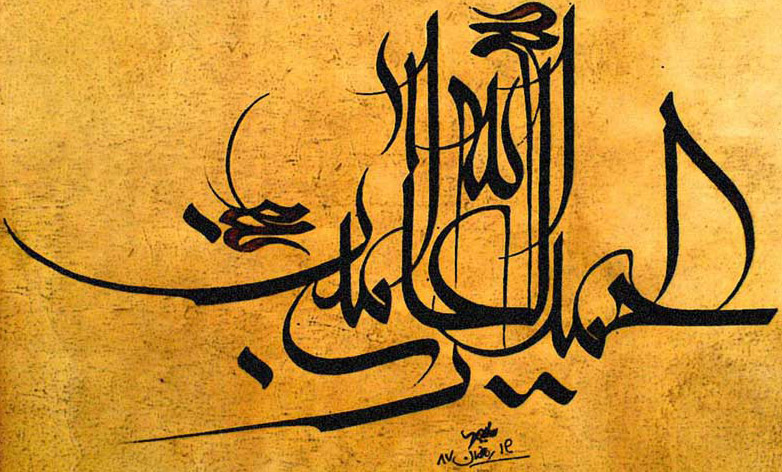 الحمد لله رب العالمين
١٤ رمضان ٨٧